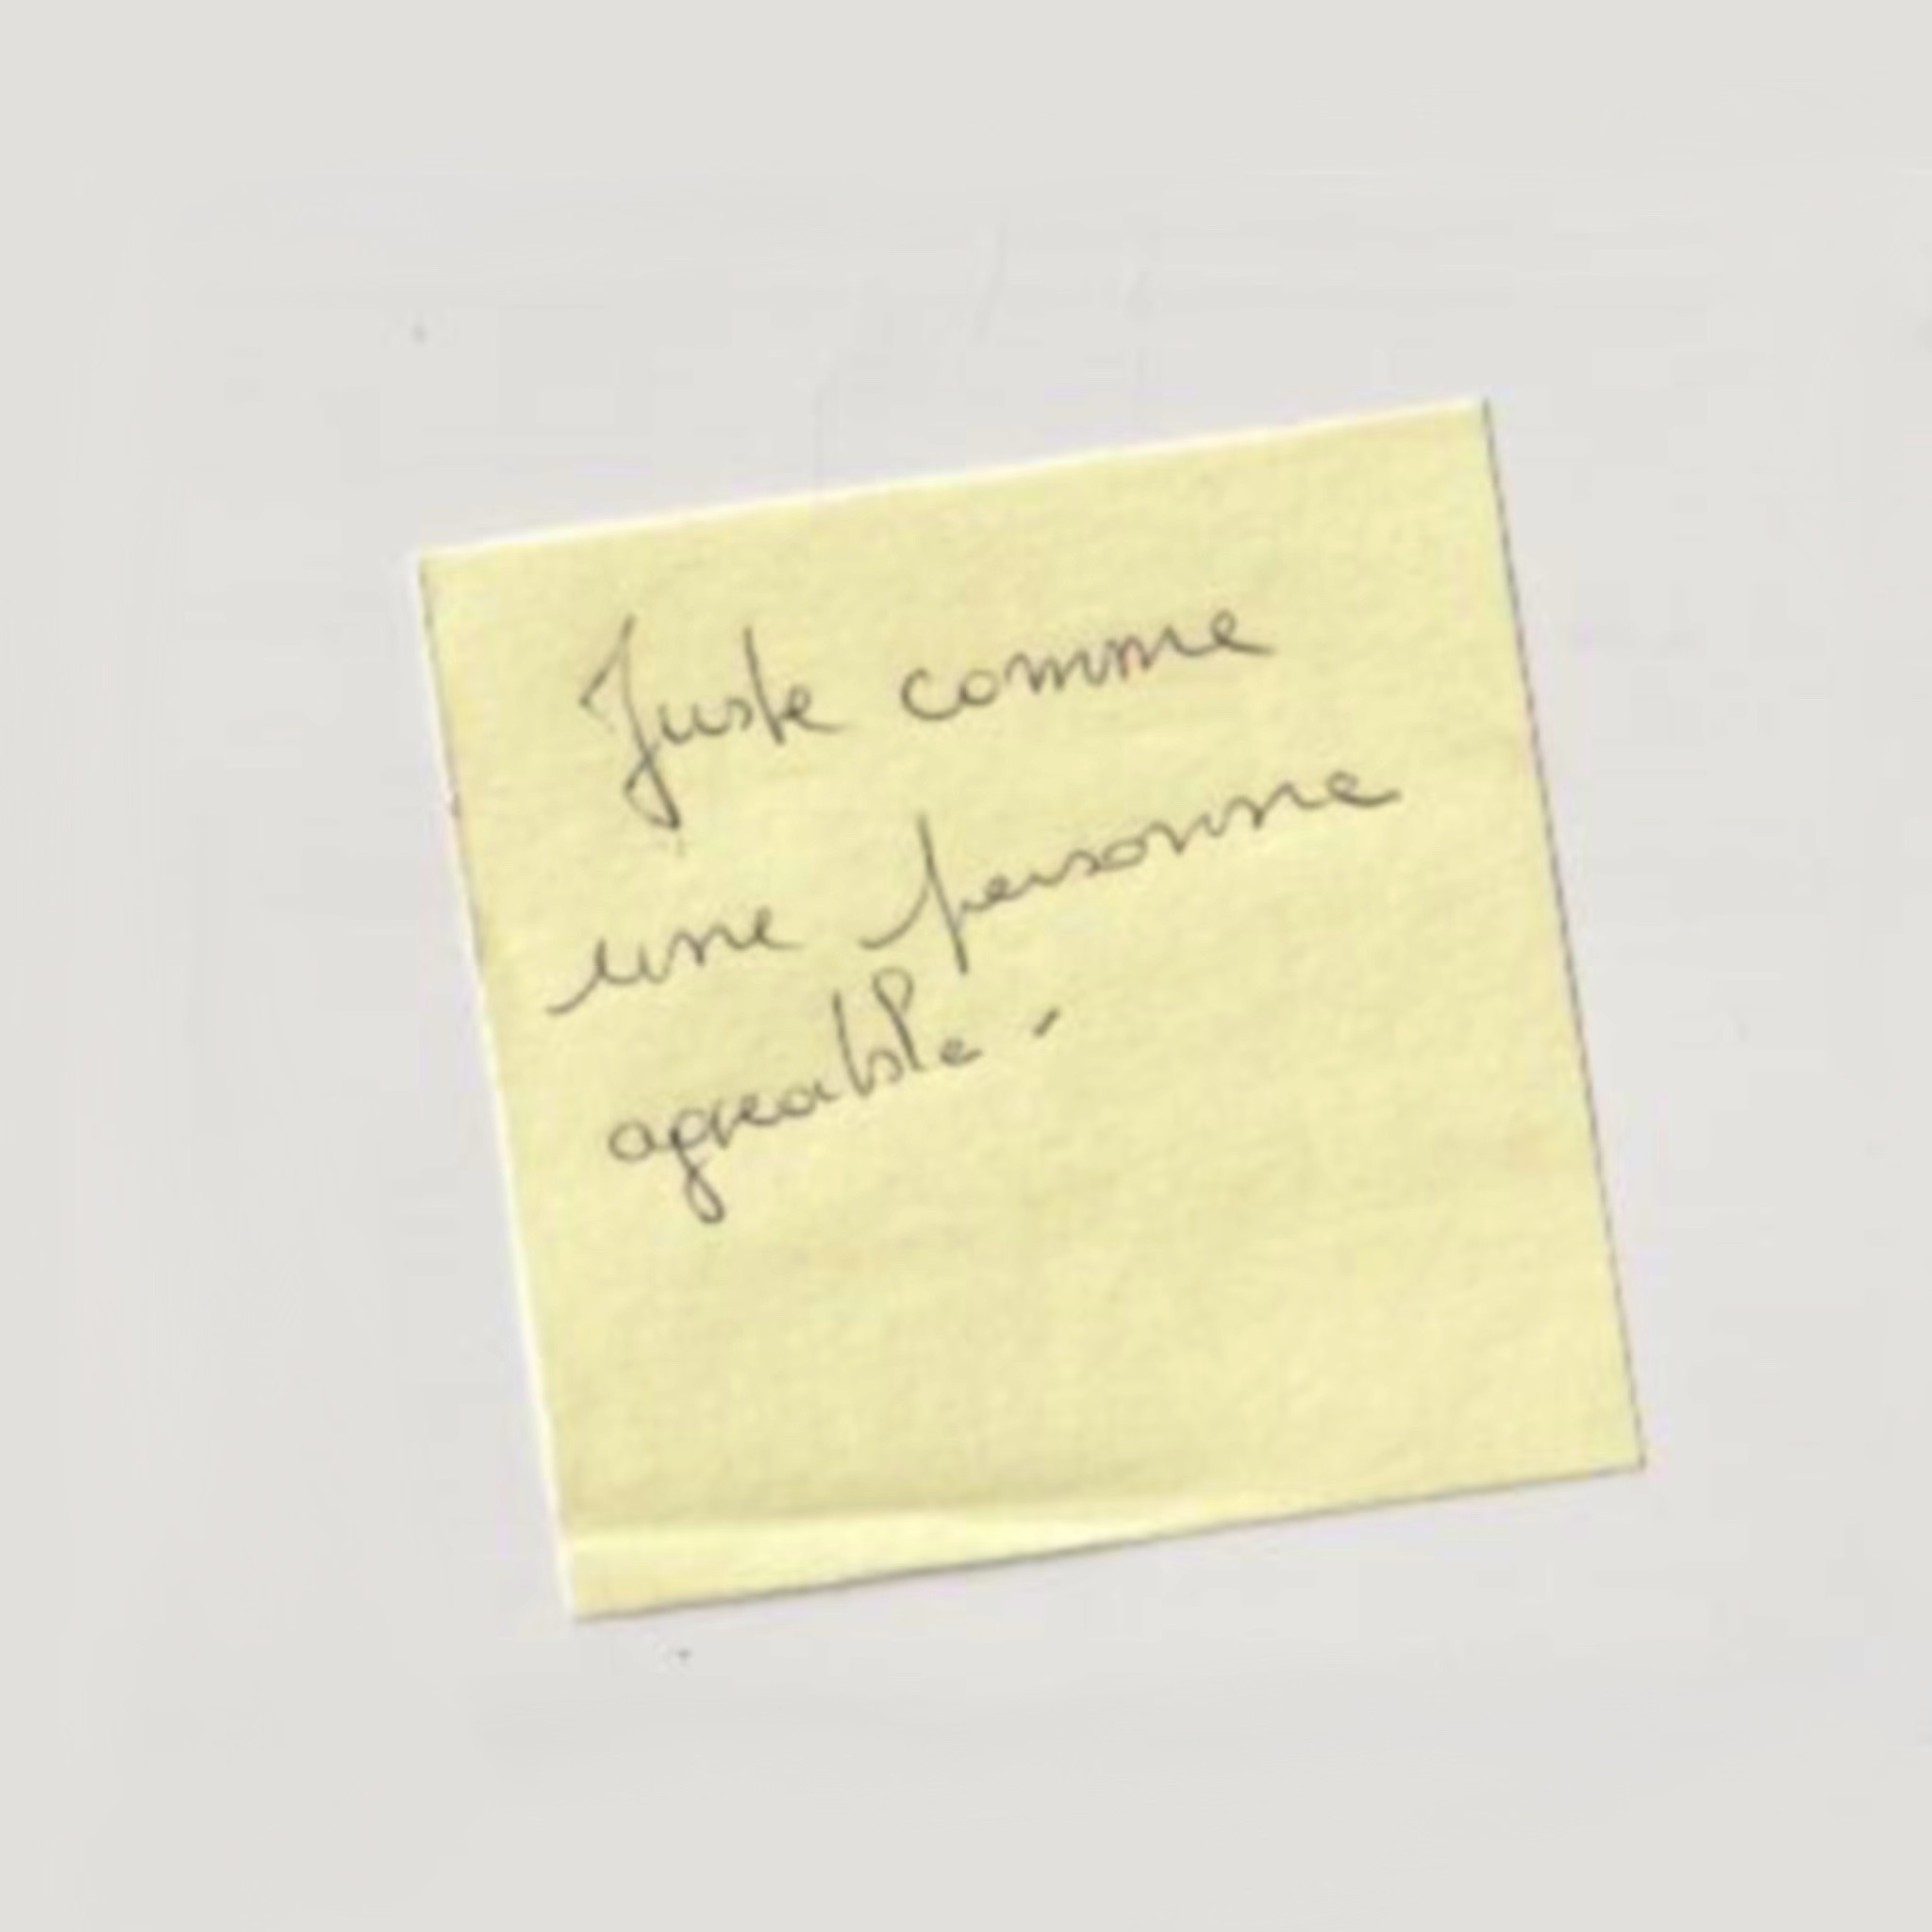 Juste comme
une personne
agreable -